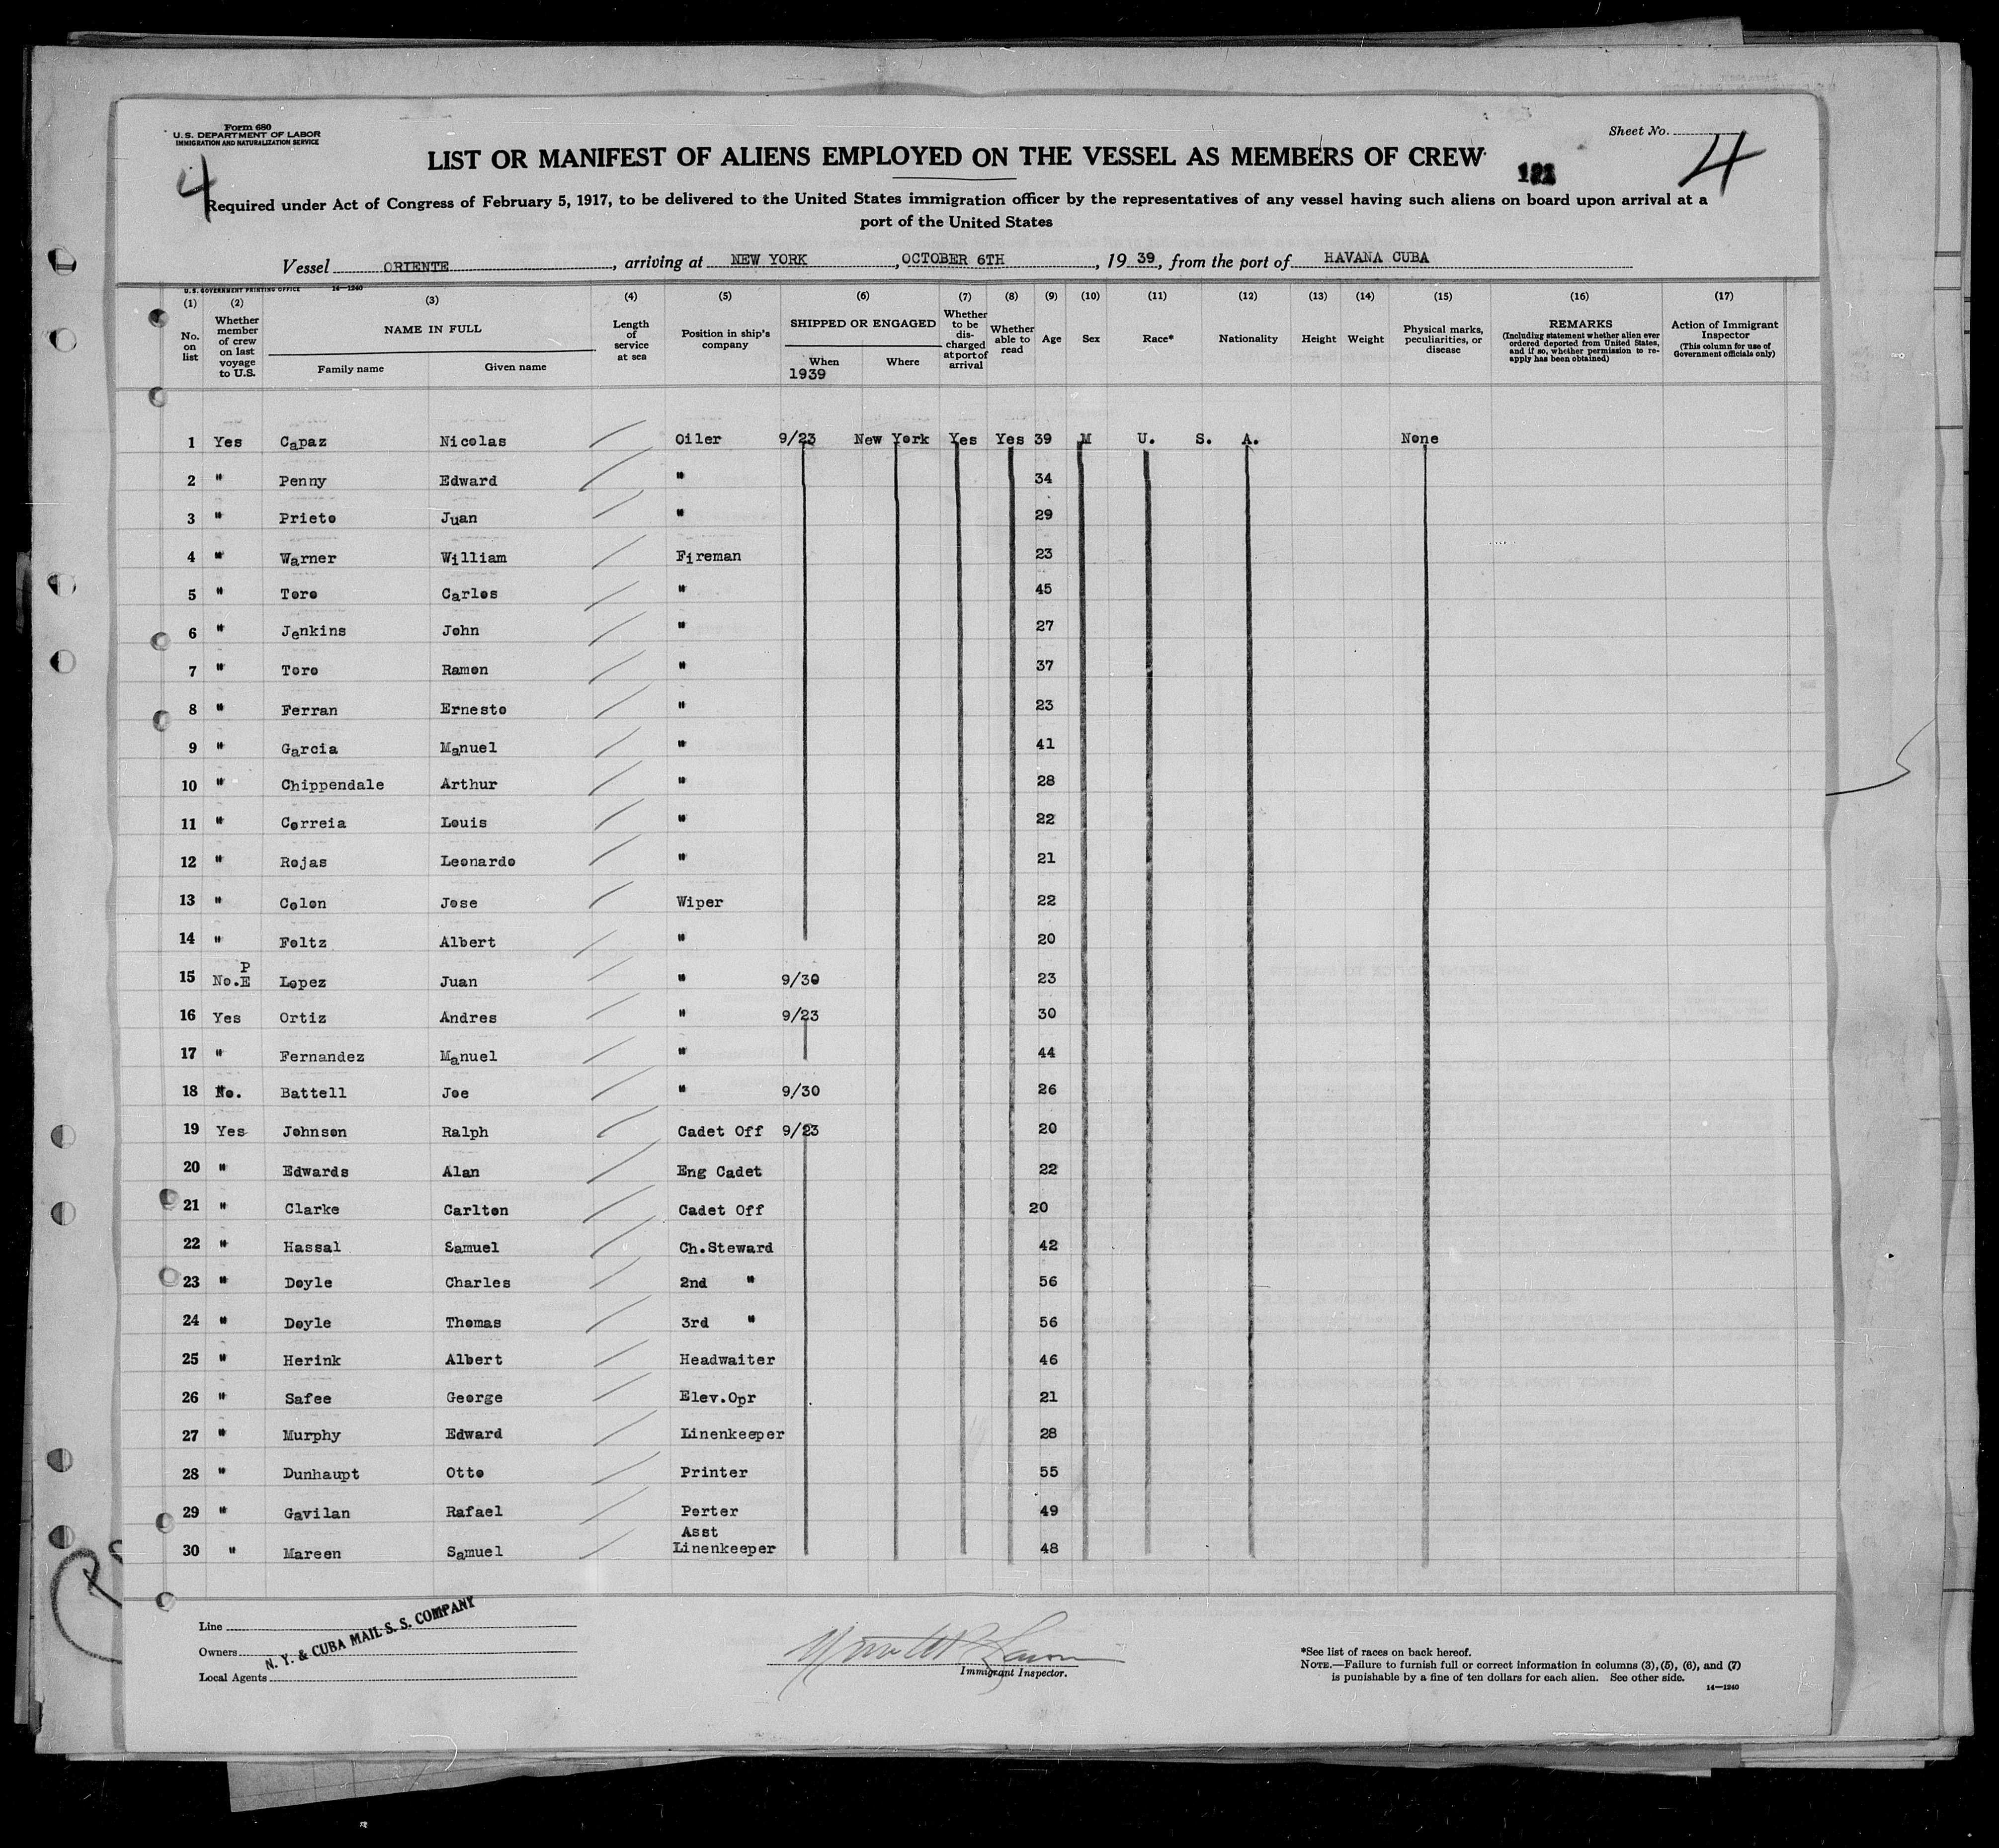 Form 680
U. S. DEPARTMENT OF LABOR
IMMIGRATION AND NATURALIZATION SERVICE
Sheet No. 4
4
LIST OR MANIFEST OF ALIENS EMPLOYED ON THE VESSEL AS MEMBERS OF CREW
Required under Act of Congress of February 5, 1917, to be delivered to the United States immigration officer by the representatives of any vessel having such aliens on board upon arrival at a
port of the United States
Vessel ORIENTE, arriving at NEW YORK, OCTOBER 6TH, 1939, from the port of HAVANA CUBA
U. S. GOVERNMENT PRINTING OFFICE 14—1240
(1) (2) (3) (4) (5) (6) (7) (8) (9) (10) (11) (12) (13) (14) (15) (16) (17)
No. on list
Whether member of crew on last voyage to U.S.
NAME IN FULL
Family name Given name
Length of service at sea
Position in ship's company
SHIPPED OR ENGAGED
When Where
1939
Whether to be discharged at port of arrival
Whether able to read
Age
Sex
Race*
Nationality
Height
Weight
Physical marks, peculiarities, or disease
REMARKS
(Including statement whether alien ever ordered deported from United States, and if so, whether permission to re-apply has been obtained)
Action of Immigrant Inspector
(This column for use of Government officials only)
1 Yes Capaz Nicolas Oiler 9/23 New York Yes Yes 39 M U. S. A. None
2 " Penny Edward " 34
3 " Prieto Juan " 29
4 " Warner William Fireman 23
5 " Toro Carlos " 45
6 " Jenkins John " 27
7 " Toro Ramon " 37
8 " Ferran Ernesto " 23
9 " Garcia Manuel " 41
10 " Chippendale Arthur " 28
11 " Correia Louis " 22
12 " Rojas Leonardo " 21
13 " Colon Jose Wiper 22
14 " Foltz Albert " 20
P
15 No.E Lopez Juan " 9/30 23
16 Yes Ortiz Andres " 9/23 30
17 " Fernandez Manuel " 44
18 No. Battell Joe " 9/30 26
19 Yes Johnson Ralph Cadet Off 9/23 20
20 " Edwards Alan Eng Cadet 22
21 " Clarke Carlton Cadet Off 20
22 " Hassal Samuel Ch.Steward 42
23 " Doyle Charles 2nd " 56
24 " Doyle Thomas 3rd " 56
25 " Herink Albert Headwaiter 46
26 " Safee George Elev.Opr 21
27 " Murphy Edward Linenkeeper 28
28 " Dunhaupt Otto Printer 55
29 " Gavilan Rafael Porter 49
Asst
30 " Mareen Samuel Linenkeeper 48
Line
Owners
Local Agents
N. Y. & CUBA MAIL S. S. COMPANY
Immigrant Inspector.
*See list of races on back hereof.
NOTE.—Failure to furnish full or correct information in columns (3), (5), (6), and (7)
is punishable by a fine of ten dollars for each alien. See other side.
14—1240